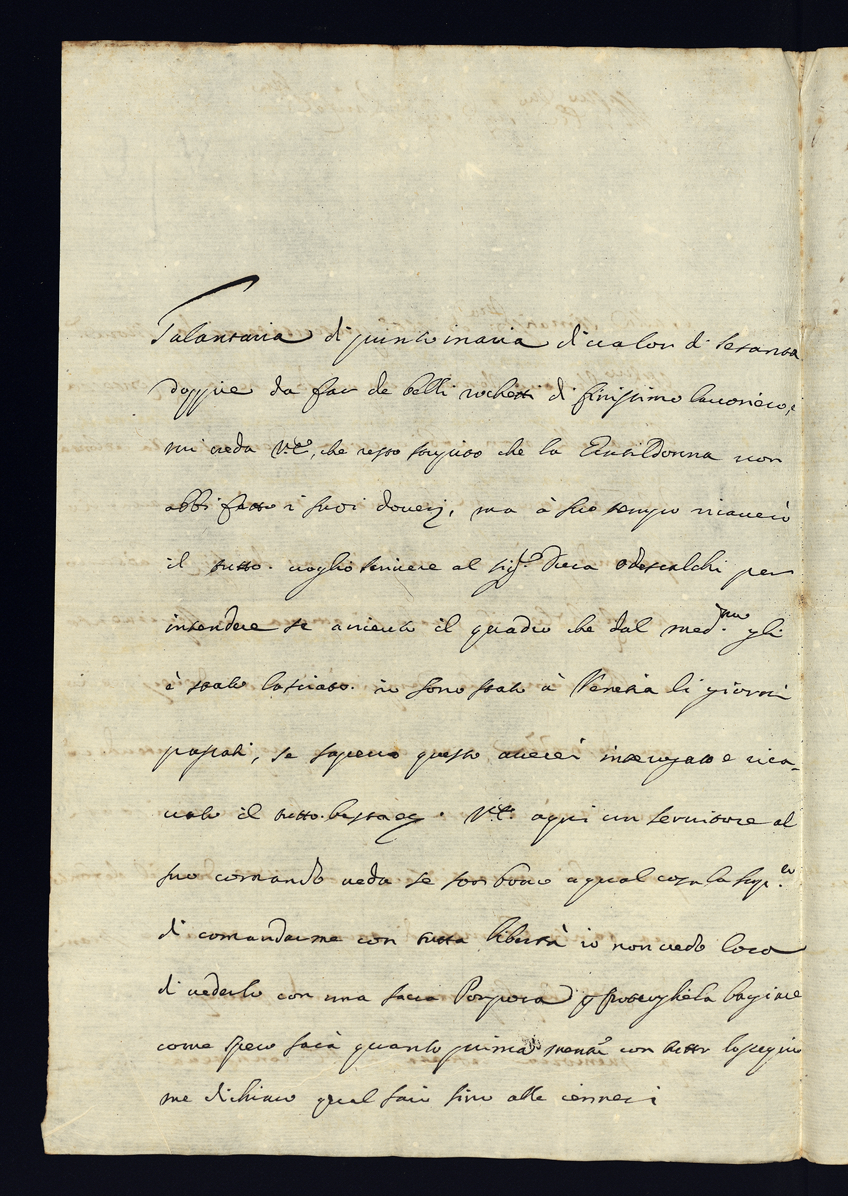 Talantaria di quinto inaria di ualor di sesanta
doppie da far de belli rochetti di finissimo lauoriero,
mi creda V.E., che resto stupitto che la Gentildonna non
abbi fatto i suoi doueri, ma à suo tempo ricauerò
il tutto. uoglio scriuere al sig.r Duca Odescalchi per
intendere se auerà il quadro che dal med.mo gli
è stato lasciato. io sono stato à Venetia li giorni
passati, se sapeuo questo auerei interogato e rica-
uato il tutto. basta V.E. agui un seruitore al
suo comando ueda se son bono a qual cosa la sup.co
di comandarme con tutta libertà io non uedo l'ora
di uederlo con una sacra Porpora
come spero sarà quanto prima mentre con tutto l'ossequio
me dichiaro qual sarò sino alle ceneri